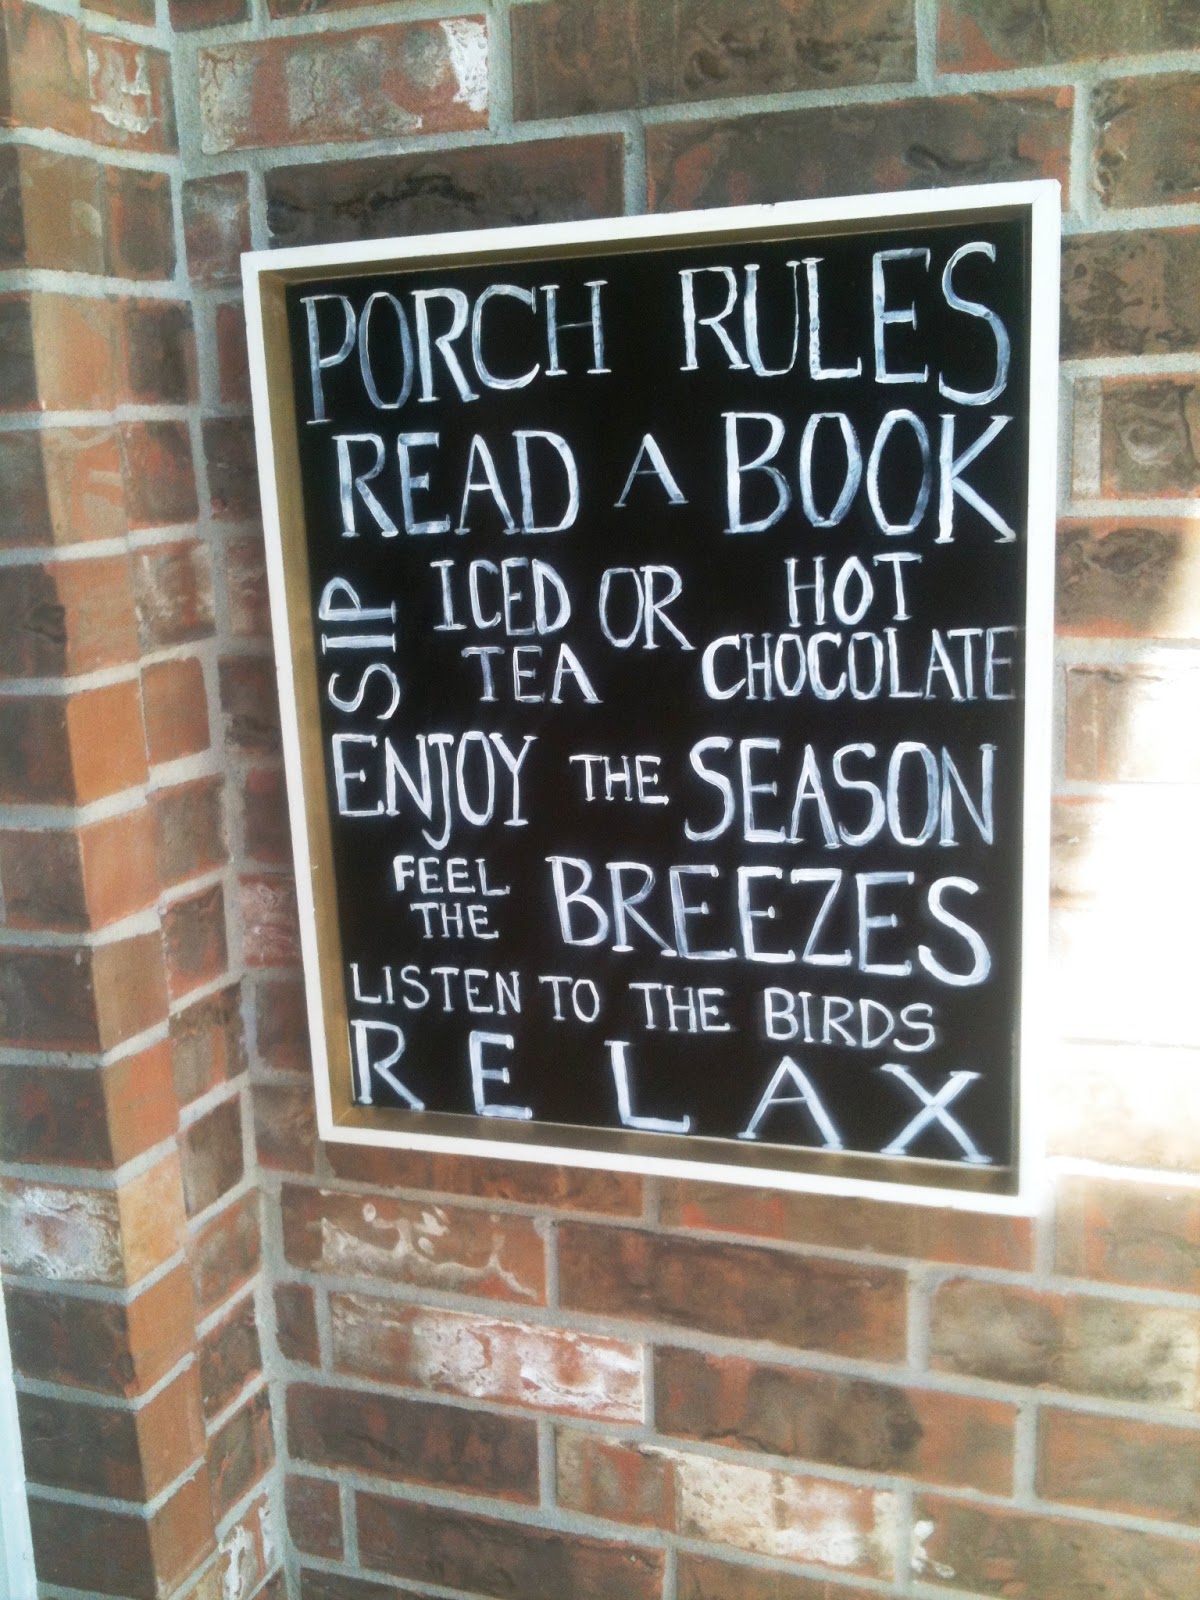 PORCH RULES
READ A BOOK
SIP ICED TEA OR HOT CHOCOLATE
ENJOY THE SEASON
FEEL THE BREEZES
LISTEN TO THE BIRDS
RELAX